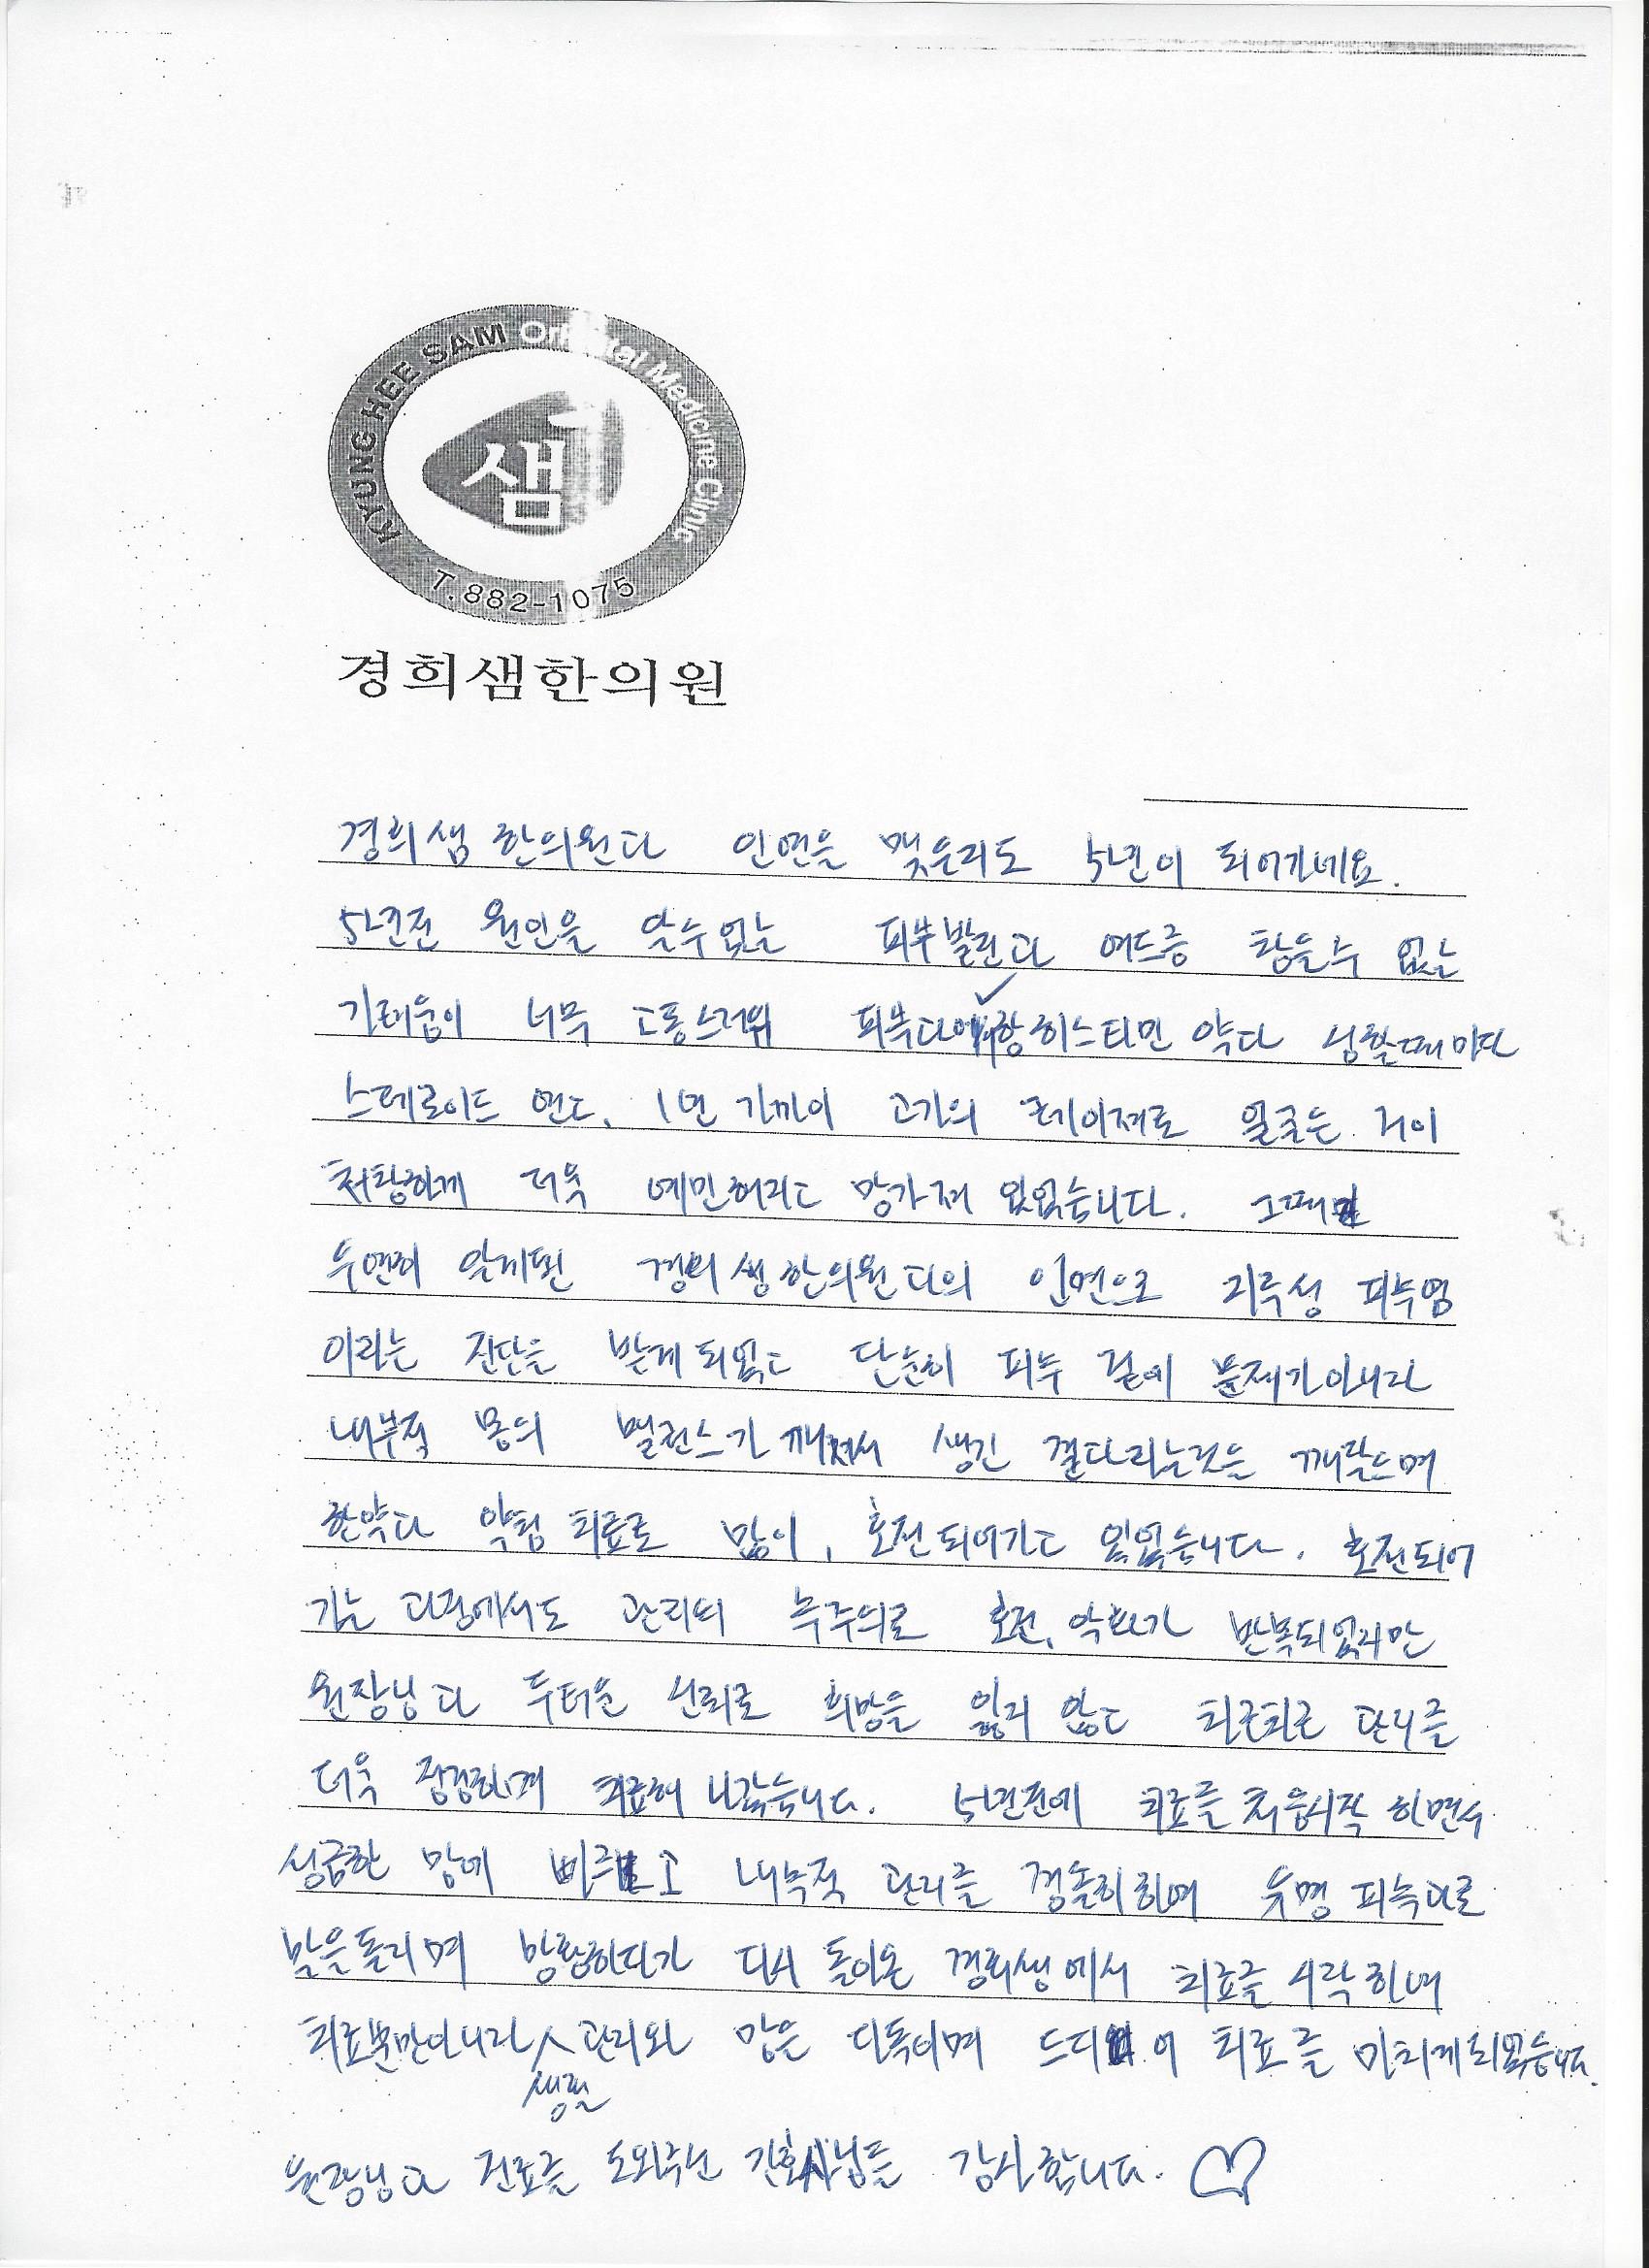 KYUNG HEE SAM Oriental Medicine Clinic
샘
T.882-1075
경희샘한의원
경희샘 한의원과 인연을 맺은지도 5년이 되어가네요.
5년전 원인을 알수없는 피부발진과 여드름 참을수 없는
가려움이 너무 고통스러워 피부과에서 항히스타민 약과 심할때마다
스테로이드 연고, 1년 가까이 고가의 레이져로 얼굴은 거이
처참하게 더욱 예민해지고 망가져 있었습니다. 그때
우연히 알게된 경희샘한의원과의 인연으로 지루성 피부염
이라는 진단을 받게되었고 단순히 피부 겉에 문제가아니라
내부적 몸의 밸런스가 깨져서 생긴 결과라는것을 깨달으며
한약과 약침 치료로 많이, 호전되어가고 있었습니다. 호전되어
가는 과정에서도 관리의 부주의로 호전, 악화가 반복되었지만
원장님과 두터운 신뢰로 희망을 잃지 않고 차근차근 관리를
더욱 철저하게 치료해 나갔습니다. 5년전에 치료를 처음시작 하면서
성급한 맘에 고 내부적 관리를 경솔히하여 유명 피부과로
발을돌리며 방황하다가 다시 돌아온 경희샘에서 치료를 시작하며
치료뿐만아니라 생활 관리와 맘을 다독이며 드디어 치료를 마치게되었습니다.
원장님과 진료를 도와주는 간호사님들 감사합니다. ♡